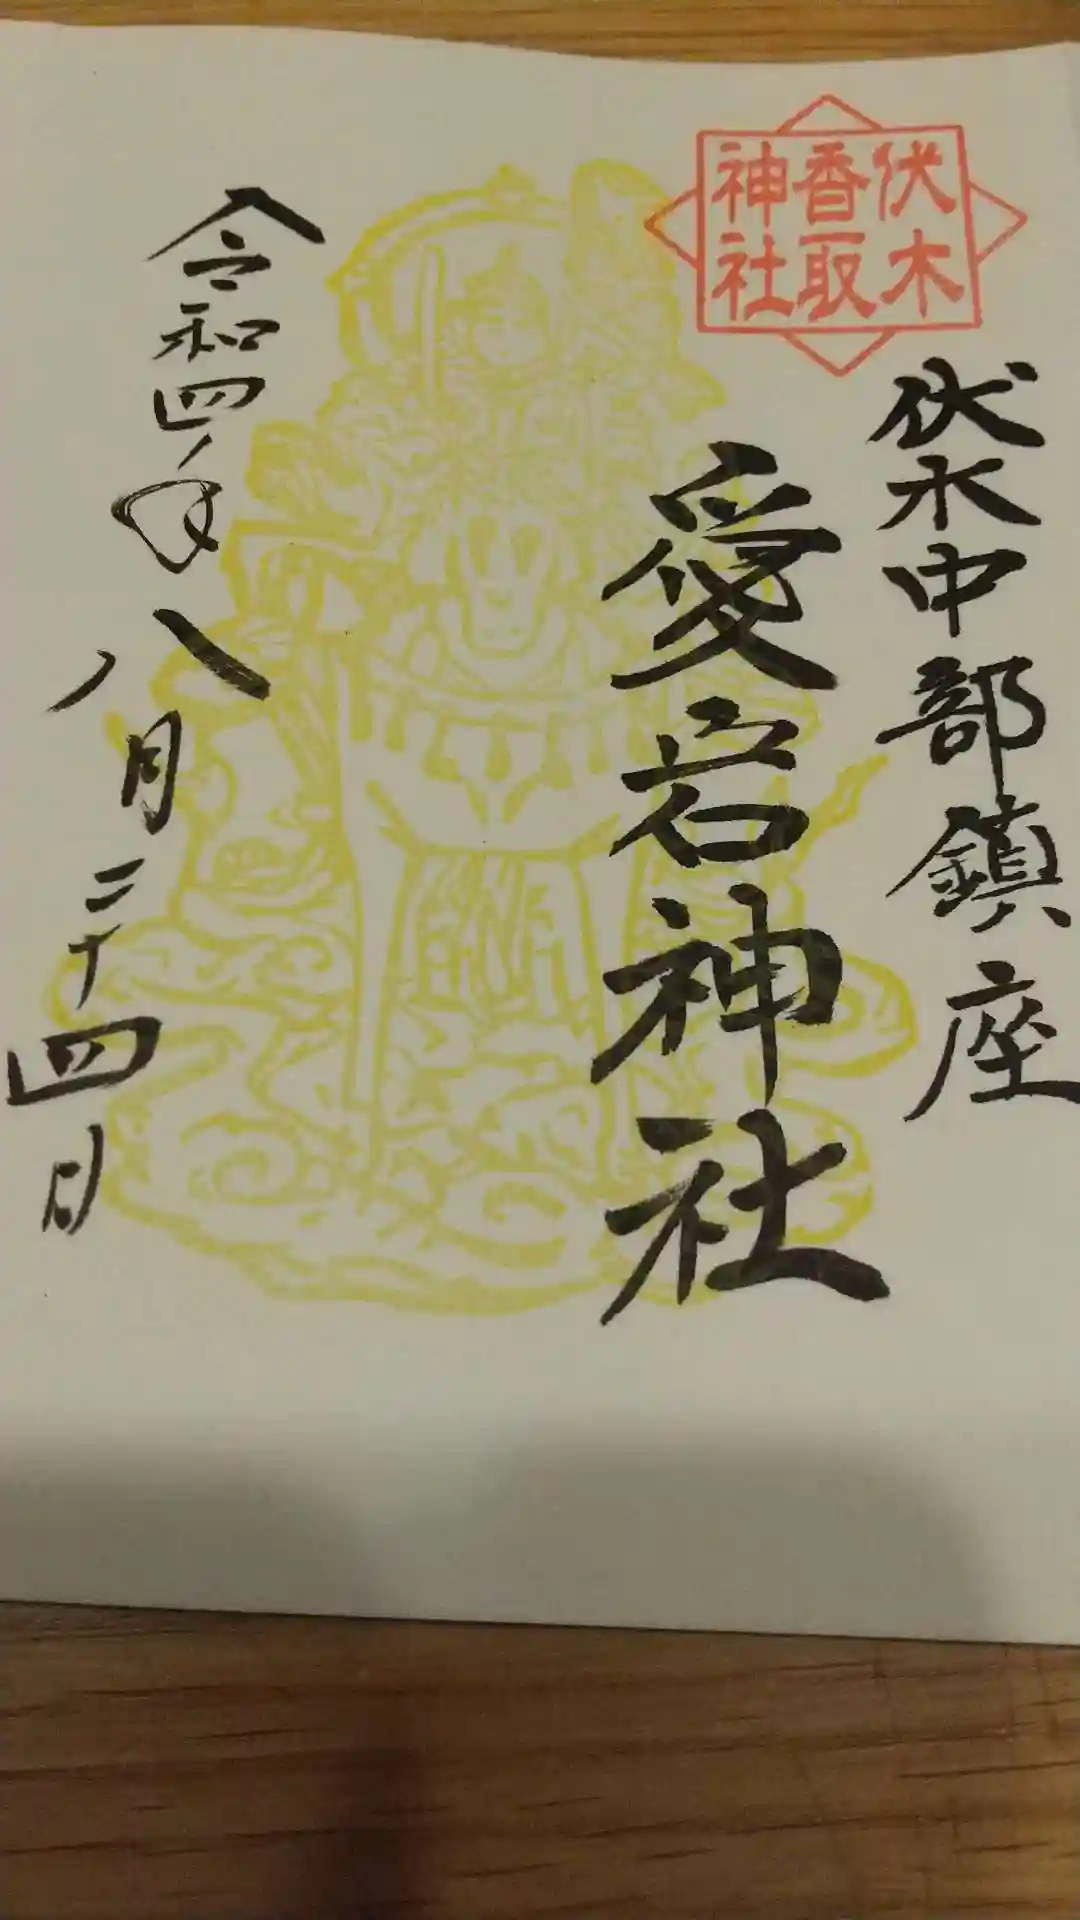 伏木
香取
神社
伏木中部鎮座
愛宕神社
令和四年八月二十四日